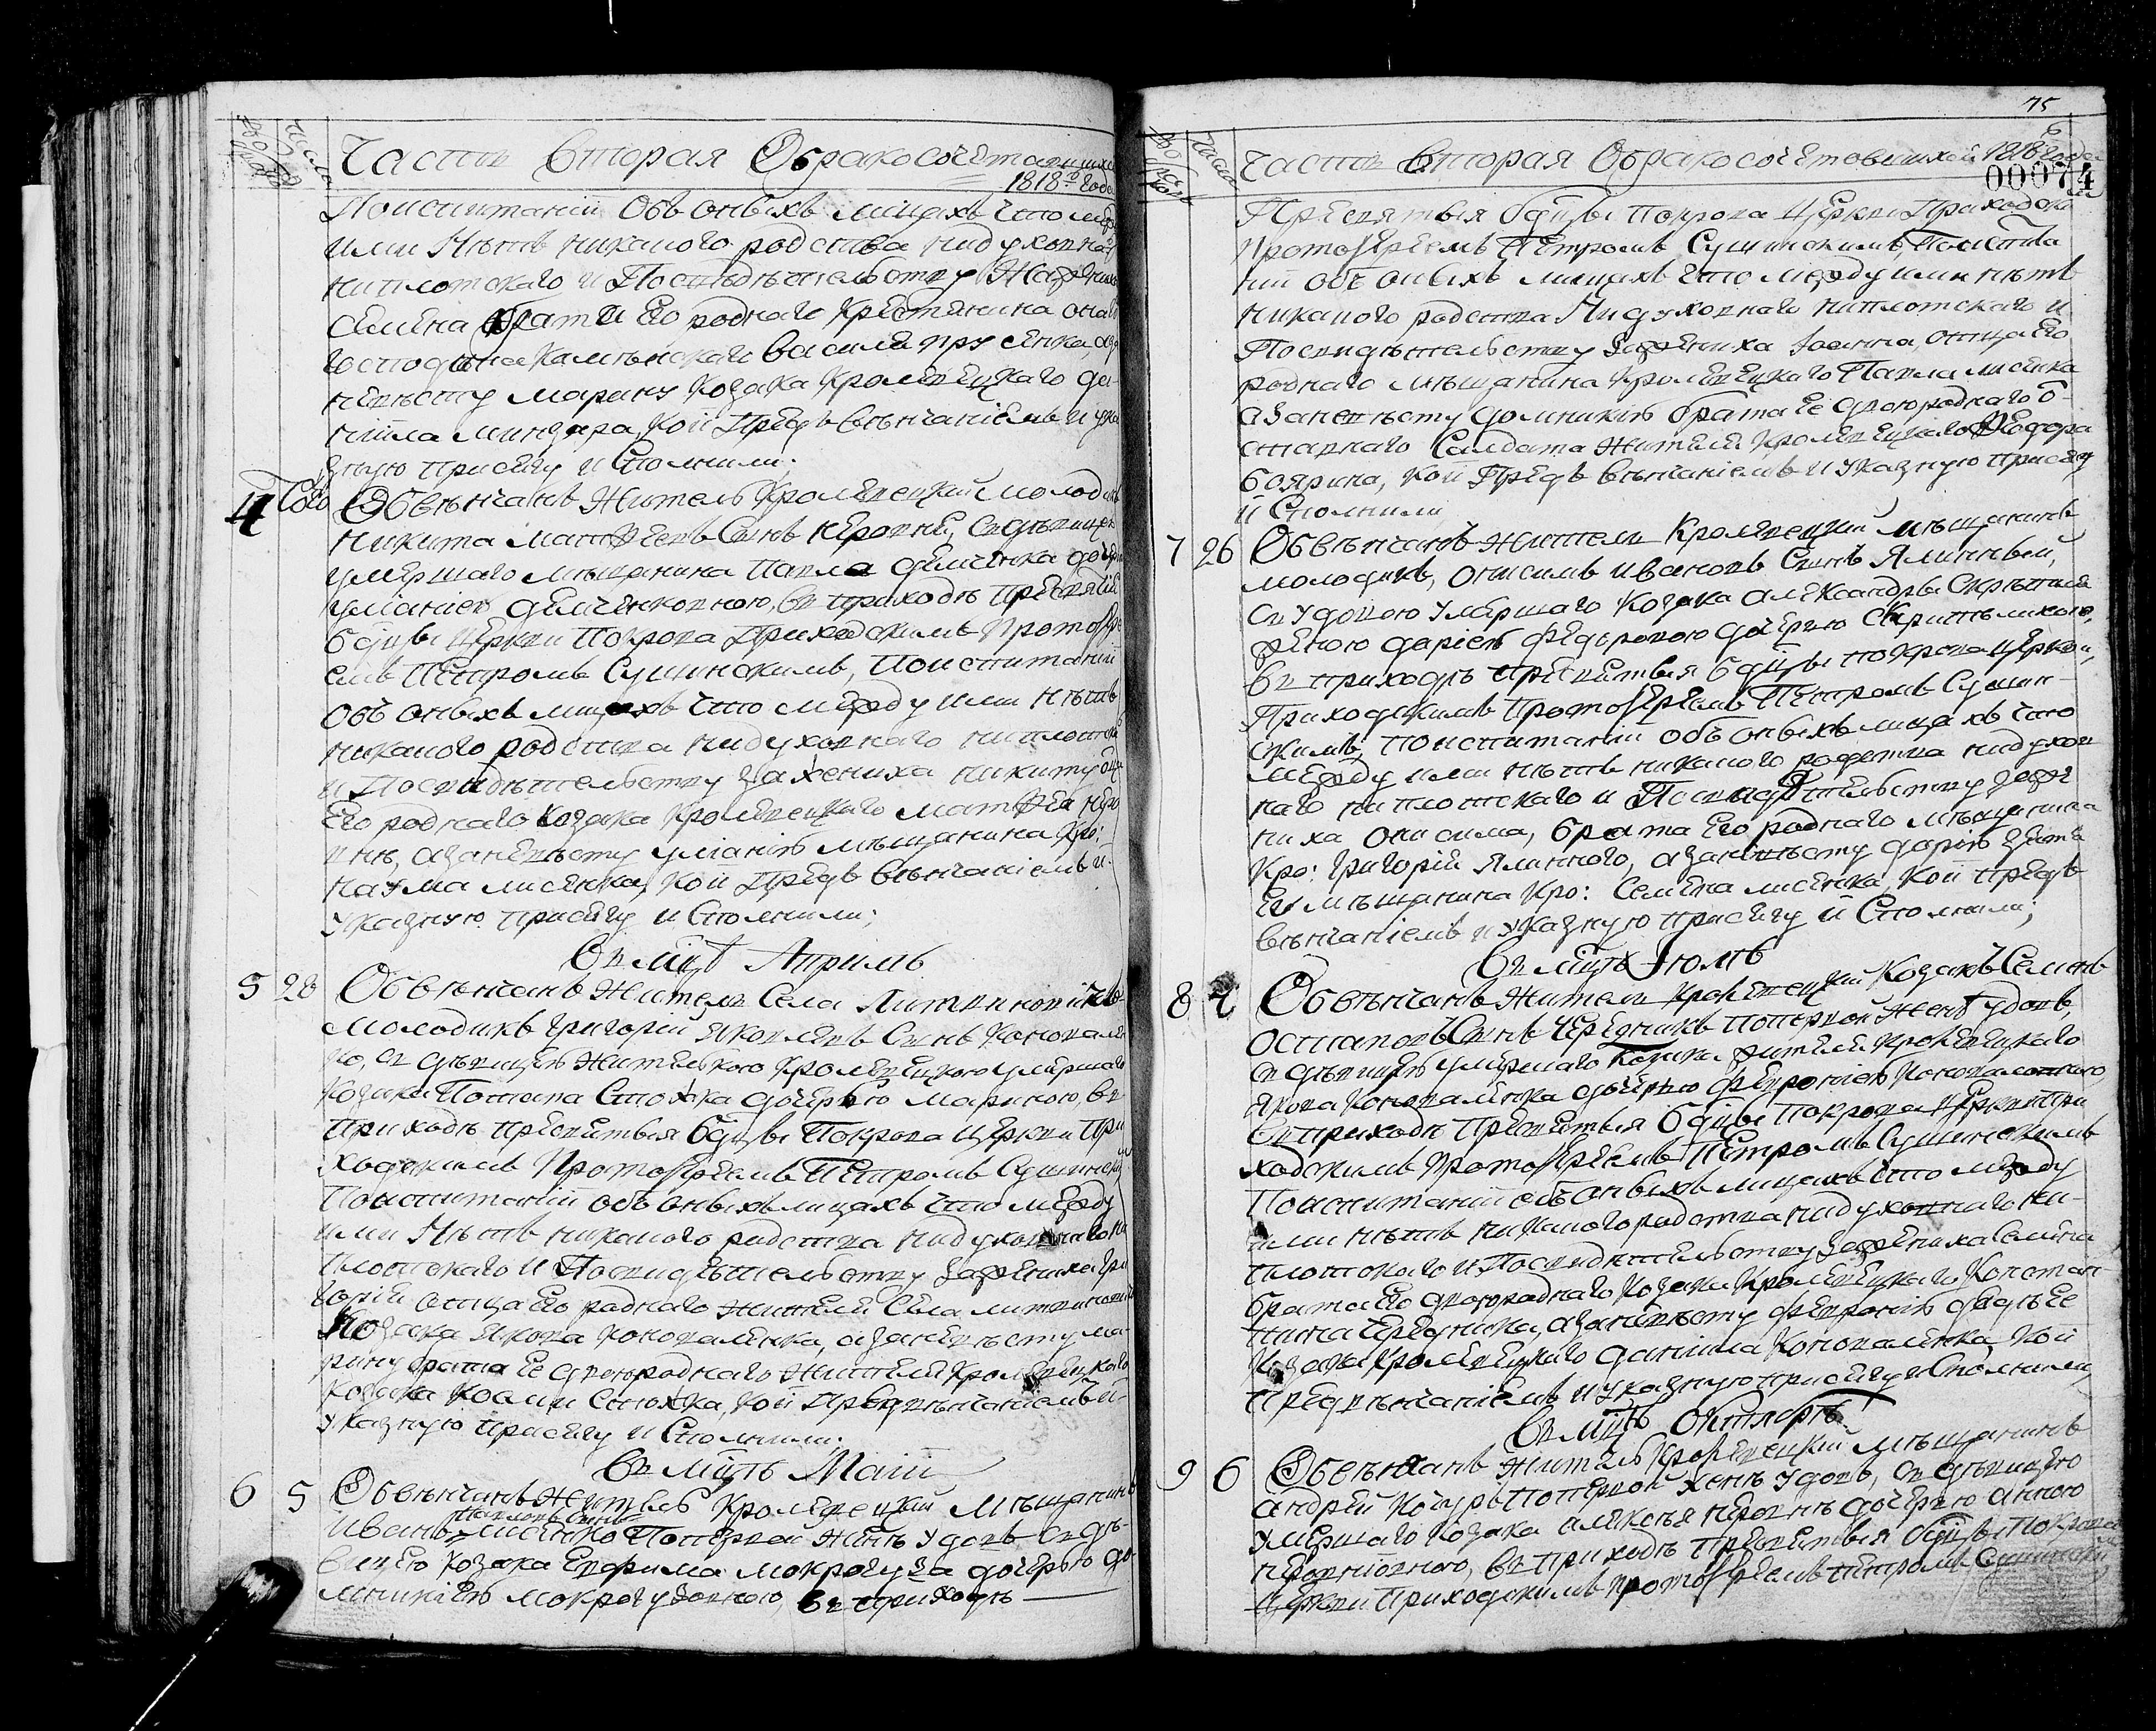 Часть вторая Обракосочетавшихся
1818го года
По испитаній объ оныхъ лицахъ что между
ими нѣтъ никакого родства ни духовнаго
ни плотскаго и по свидѣтельству за жениха
Семена брата его роднаго крестянина онаго
господина Каменскаго Василя Прусенка, а за
невѣсту Марину козака кролевецкаго Да-
нила Миндара, кои предъ вѣнчаніемъ и ука
зную присягу исполнили;
4 Того Обвѣнчанъ житель кролевецкій молодикъ
Никита Матфеевъ сынъ Неровній, съ дѣвицею
умершаго мѣщанина Павла Демченка дочерю
Уліаніею Демченковною, въ приходѣ пресвятія
Бдцы церкви Покрова приходскимъ протоіере
емъ Петромъ Сушинскимъ, по испитаній
объ оныхъ лицахъ что между ими нѣтъ
никакого родства ни духовнаго ни плотска
и по свидѣтельству за жениха Никиту отца
его роднаго козака кролевецкаго Матфея Неро
внѣ, а за невѣсту Уліанію мѣщанина кро:
Наума Лисенка, кои предъ вѣнчаніемъ и
указную присягу исполнили;
Въ мцѣ Априлѣ
5 28 Обвѣнчанъ житель села Литвиновичъ
молодикъ Григорій Яковлевъ сынъ Коновален
ко, съ дѣвицею жителкою кролевецкою умершаго
козака Потапа Стожка дочерью Мариною, въ
приходѣ пресвятыя Бдцы Покрова церкви при
ходскимъ протоіереемъ Петромъ Сушинским
по испитаній объ оныхъ лицахъ что между
ими нѣтъ никакого родства ни духовнаго ни
плотскаго и по свидѣтельству за жениха Гри
горія отца его роднаго жителя села Литвинович
козака Якова Коноваленка, а за невѣсту Ма-
рину брата ее двоюроднаго жителя кролевецкаго
козака Козми Стожка, кои предъ вѣнчаніемъ и
указную присягу исполнили;
Въ мцѣ Маіи
6 5 Обвѣнчанъ житель кролевецкій мѣщанинъ
Павловъ синъ
Иванъ Лисенко по первой женѣ удовъ съ дѣ-
вицею козака Ефрима Мокрогуза дочерью До-
мникіею Мокрогузовною, въ приходѣ
75
Часть вторая Обракосочетовшихся 1818го года
00074
Пресвятыя Бдцы Покрова церкви приходски
протоіереемъ Петромъ Сушинскимъ, по испита
ній объ оныхъ лицахъ что между ими нѣтъ
никакого родства ни духовнаго ни плотскаго и
по свидѣтельству за жениха Іоанна, отца его
роднаго мѣщанина кролевецкаго Павла Лисенка
а за невѣсту Домникію брата ее двоюроднаго о-
ставнаго салдата жителя кролевецкаго Феодора
Боярина, кои предъ вѣнчаніемъ и указную присягу
исполнили
7 26 Обвѣнчанъ житель кролевецкій мѣщанинъ
молодикъ, Онисимъ Ивановъ синъ Ялинный,
съ удовою умершаго козака Александры Скрипни
женою Даріею Федоровою дочерю Скрипниковою,
въ приходѣ пресвятыя Бдцы Покрова церкви,
приходскимъ протоіереемъ Петромъ Сушин-
скимъ, по испитаній объ оныхъ лицахъ что
между ими нѣтъ никакого родства ни духов
наго ни плотскаго и по свидѣтельству за же
ниха Онисима, брата его роднаго мѣщанина
кро: Григорія Ялинного, а за невѣсту Дарію зятя
ее мѣщанина кро: Семена Лисенка, кои предъ
вѣнчаніемъ и указную присягу исполнили;
Въ мцѣ Іюлѣ
8 7 Обвѣнчанъ житель кролевецкій козакъ Семенъ
Остаповъ синъ Чередникъ по первой женѣ удовъ,
съ дѣвицею умершаго козака жителя кролевецкаго
Якова Коноваленка дочерью Февроніею Коноваловною,
въ приходѣ пресвятыя Бдцы Покрова церкви при
ходскимъ протоіереемъ Петромъ Сушинскимъ
по испитаній объ оныхъ лицахъ что между
ими нѣтъ никакого родства ни духовнаго ни-
плотскаго и по свидѣтельству за жениха Семена
брата его двоюроднаго козака кролевецкаго Констан
тина Чередника, а за невѣсту Февронію дядѣ ее
козака кролевецкаго Даніила Коноваленка кои
предъ вѣнчаніемъ и указную присягу исполнили,
Въ мцѣ Октябрѣ
9 6 Обвѣнчанъ житель кролевецкій мѣщанинъ
Андрей Кочура по первой женѣ удовъ, съ дѣвицею
умершаго козака Алексѣя Неровнѣ дочерю Анною
Неровніовною, въ приходѣ пресвятыя Бдцы Покрова
церкви приходскимъ протоіереемъ Петромъ Сушински